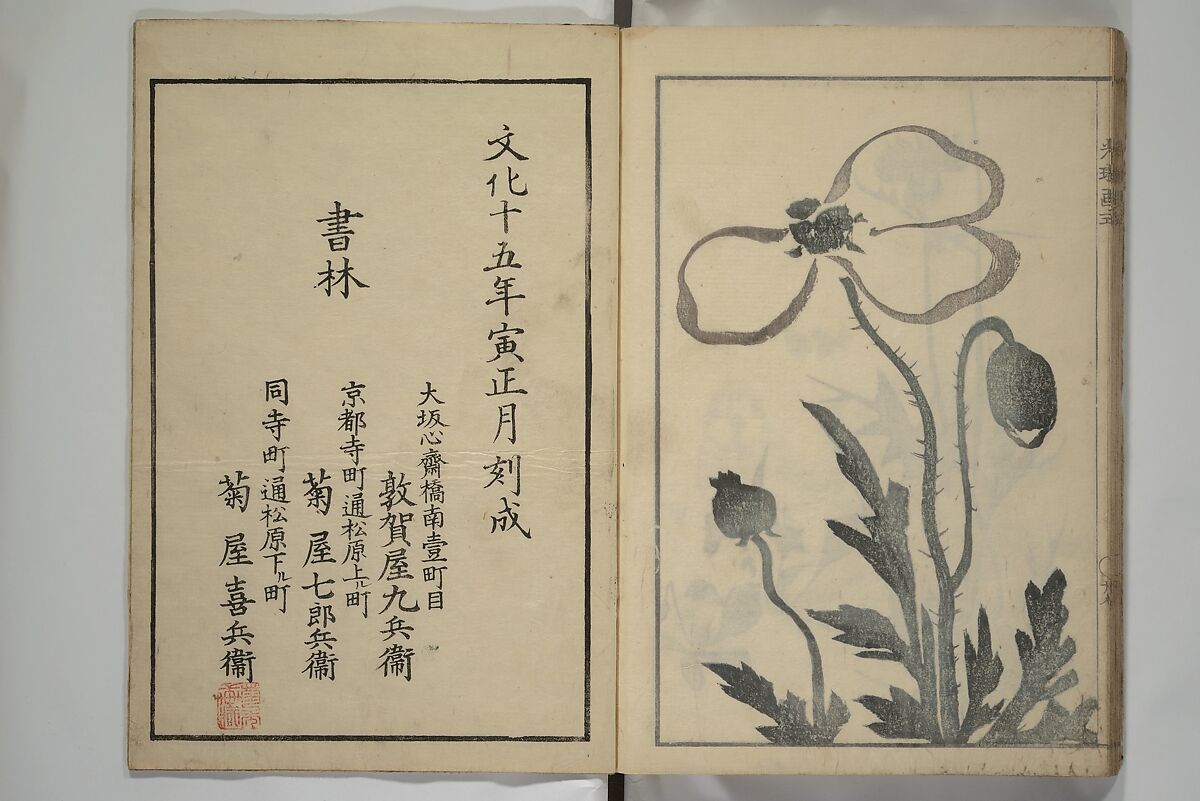 文化十五年寅正月刻成
書林
大坂心齋橋南壹町目
敦賀屋九兵衞
京都寺町通松原上ル町
菊屋七郎兵衞
同寺町通松原下ル町
菊屋喜兵衞